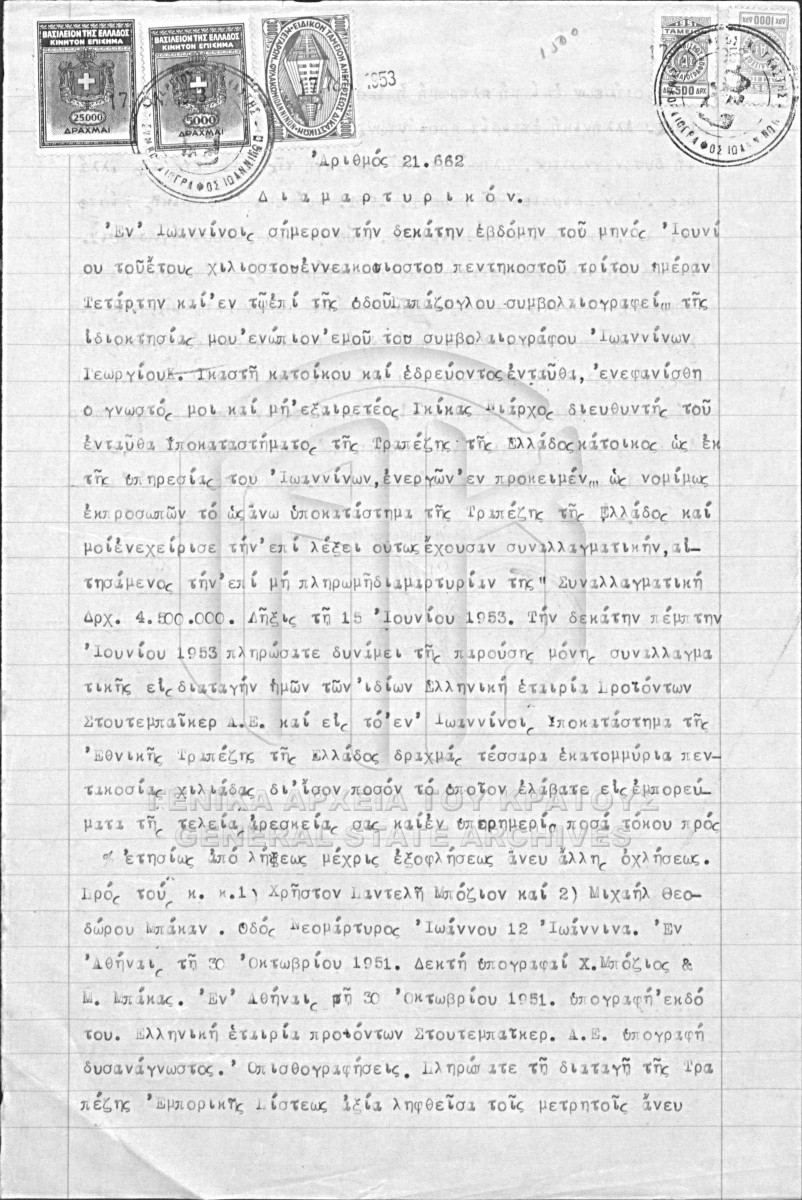 ΒΑΣΙΛΕΙΟΝ ΤΗΣ ΕΛΛΑΔΟΣ
ΚΙΝΗΤΟΝ ΕΠΙΣΗΜΑ
25000
ΔΡΑΧΜΑΙ
ΒΑΣΙΛΕΙΟΝ ΤΗΣ ΕΛΛΑΔΟΣ
ΚΙΝΗΤΟΝ ΕΠΙΣΗΜΑ
5000
ΔΡΑΧΜΑΙ
1953
500 ΔΡΧ
1000 ΔΡΧ
Ἀριθμός 21.662
Διαμαρτυρικόν.
Ἐν Ἰωαννίνοις σήμερον τήν δεκάτην ἑβδόμην τοῦ μηνός Ἰουνί
ου τοῦ ἔτους χιλιοστοῦ ἐννεακοσιοστοῦ πεντηκοστοῦ τρίτου ἡμέραν
Τετάρτην καί ἐν τῷ ἐπί τῆς ὁδοῦ Παπάζογλου συμβολαιογραφείῳ τῆς
ἰδιοκτησίας μου ἐνώπιον ἐμοῦ τοῦ συμβολαιογράφου Ἰωαννίνων
Γεωργίου Κ. Γκαστῆ κατοίκου καί ἑδρεύοντος ἐνταῦθα, ἐνεφανίσθη
ὁ γνωστός μοι καί μή ἐξαιρετέος Γκίκας διευθυντής τοῦ
ἐνταῦθα Ὑποκαταστήματος τῆς Τραπέζης τῆς Ἑλλάδος κάτοικος ὡς ἐκ
τῆς ὑπηρεσίας του Ἰωαννίνων, ἐνεργῶν ἐν προκειμένῳ ὡς νομίμως
ἐκπροσωπῶν τό ὡς ἄνω ὑποκατάστημα τῆς Τραπέζης τῆς Ἑλλάδος καί
μοί ἐνεχείρισε τήν ἐπί λέξει οὕτως ἔχουσαν συναλλαγματικήν, αἰ-
τησάμενος τήν ἐπί μή πληρωμῇ διαμαρτυρίαν της " Συναλλαγματική
Δρχ. 4.500.000. Λῆξις τῇ 15 Ἰουνίου 1953. Τήν δεκάτην πέμπτην
Ἰουνίου 1953 πληρώσατε δυνάμει τῆς παρούσης μόνης συναλλαγμα
τικῆς εἰς διαταγήν ἡμῶν τῶν ἰδίων Ἑλληνική ἑταιρία Προϊόντων
Στουτεμπαῖκερ Α.Ε. καί εἰς τό ἐν Ἰωαννίνοις Ὑποκατάστημα τῆς
Ἐθνικῆς Τραπέζης τῆς Ἑλλάδος δραχμάς τέσσαρα ἑκατομμύρια πεν-
τακοσίας χιλιάδας δι' ἴσον ποσόν τό ὁποῖον ἐλάβατε εἰς ἐμπορεύ-
ματα τῆς τελείας ἀρεσκείας σας καί ἐν ὑπερημερίᾳ ποσά τόκου πρός
% ἐτησίως ἀπό λήξεως μέχρις ἐξοφλήσεως ἄνευ ἄλλης ὀχλήσεως.
Πρός τούς κ. κ.1) Χρῆστον Παντελῆ Μπόζιον καί 2) Μιχαήλ Θεο-
δώρου Μπάκαν . Ὁδός Νεομάρτυρος Ἰωάννου 12 Ἰωάννινα. Ἐν
Ἀθήναις τῇ 30 Ὀκτωβρίου 1951. Δεκτή ὑπογραφαί Χ.Μπόζιος &
Μ. Μπάκας. Ἐν Ἀθήναις τῇ 30 Ὀκτωβρίου 1951. ὑπογραφή ἐκδό
του. Ἑλληνική ἑταιρία προϊόντων Στουτεμπαῖκερ. Α.Ε. ὑπογραφή
δυσανάγνωστος. Ὀπισθογραφήσεις. Πληρώσατε τῇ διαταγῇ τῆς Τρα
πέζης Ἐμπορικῆς Πίστεως ἀξία ληφθεῖσα τοῖς μετρητοῖς ἄνευ
ΓΕΝΙΚΑ ΑΡΧΕΙΑ ΤΟΥ ΚΡΑΤΟΥΣ
GENERAL STATE ARCHIVES